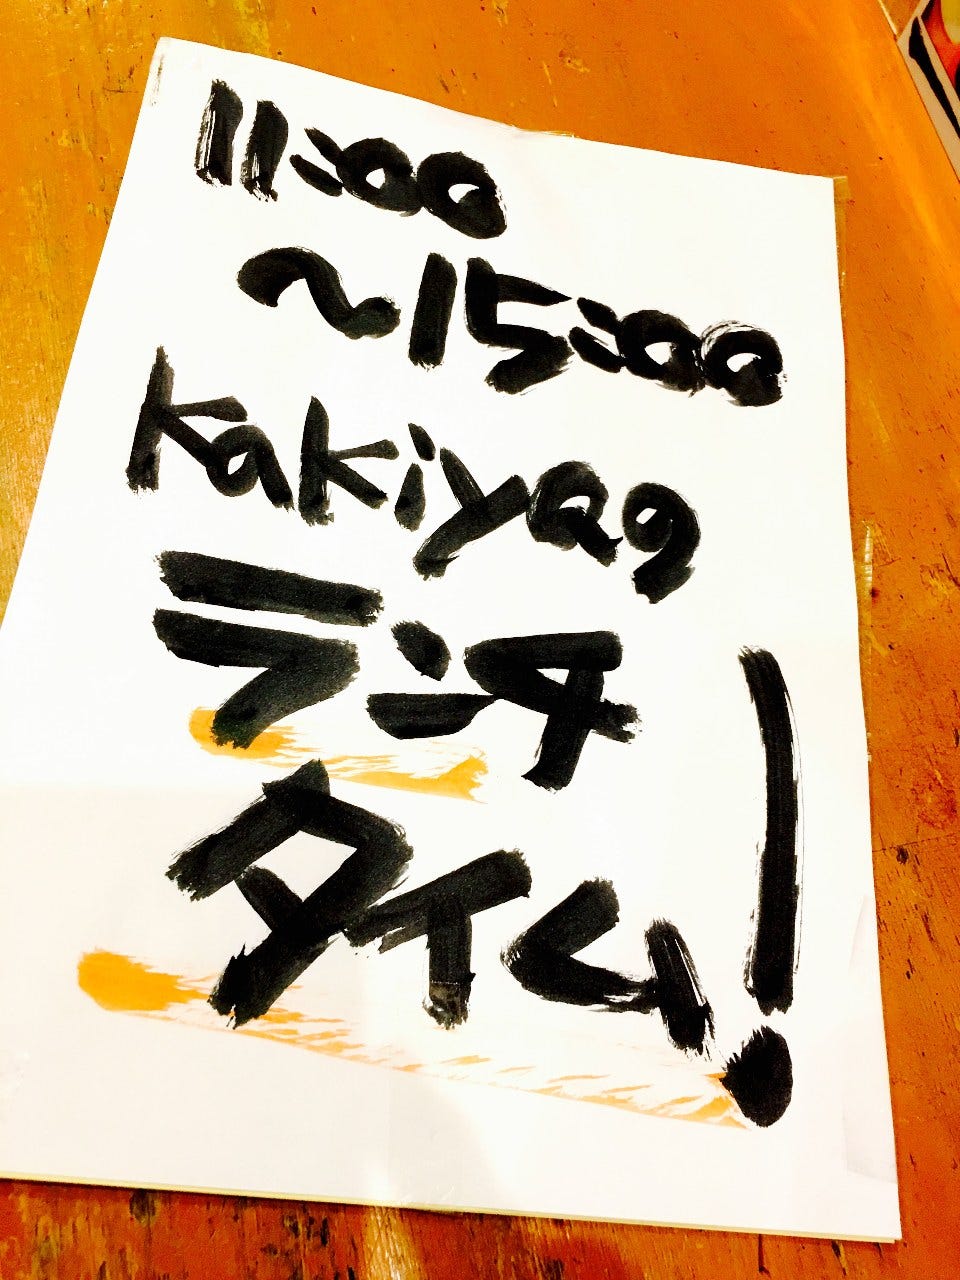 11:00
~15:00
Kakiyaの
ランチ
タイム!